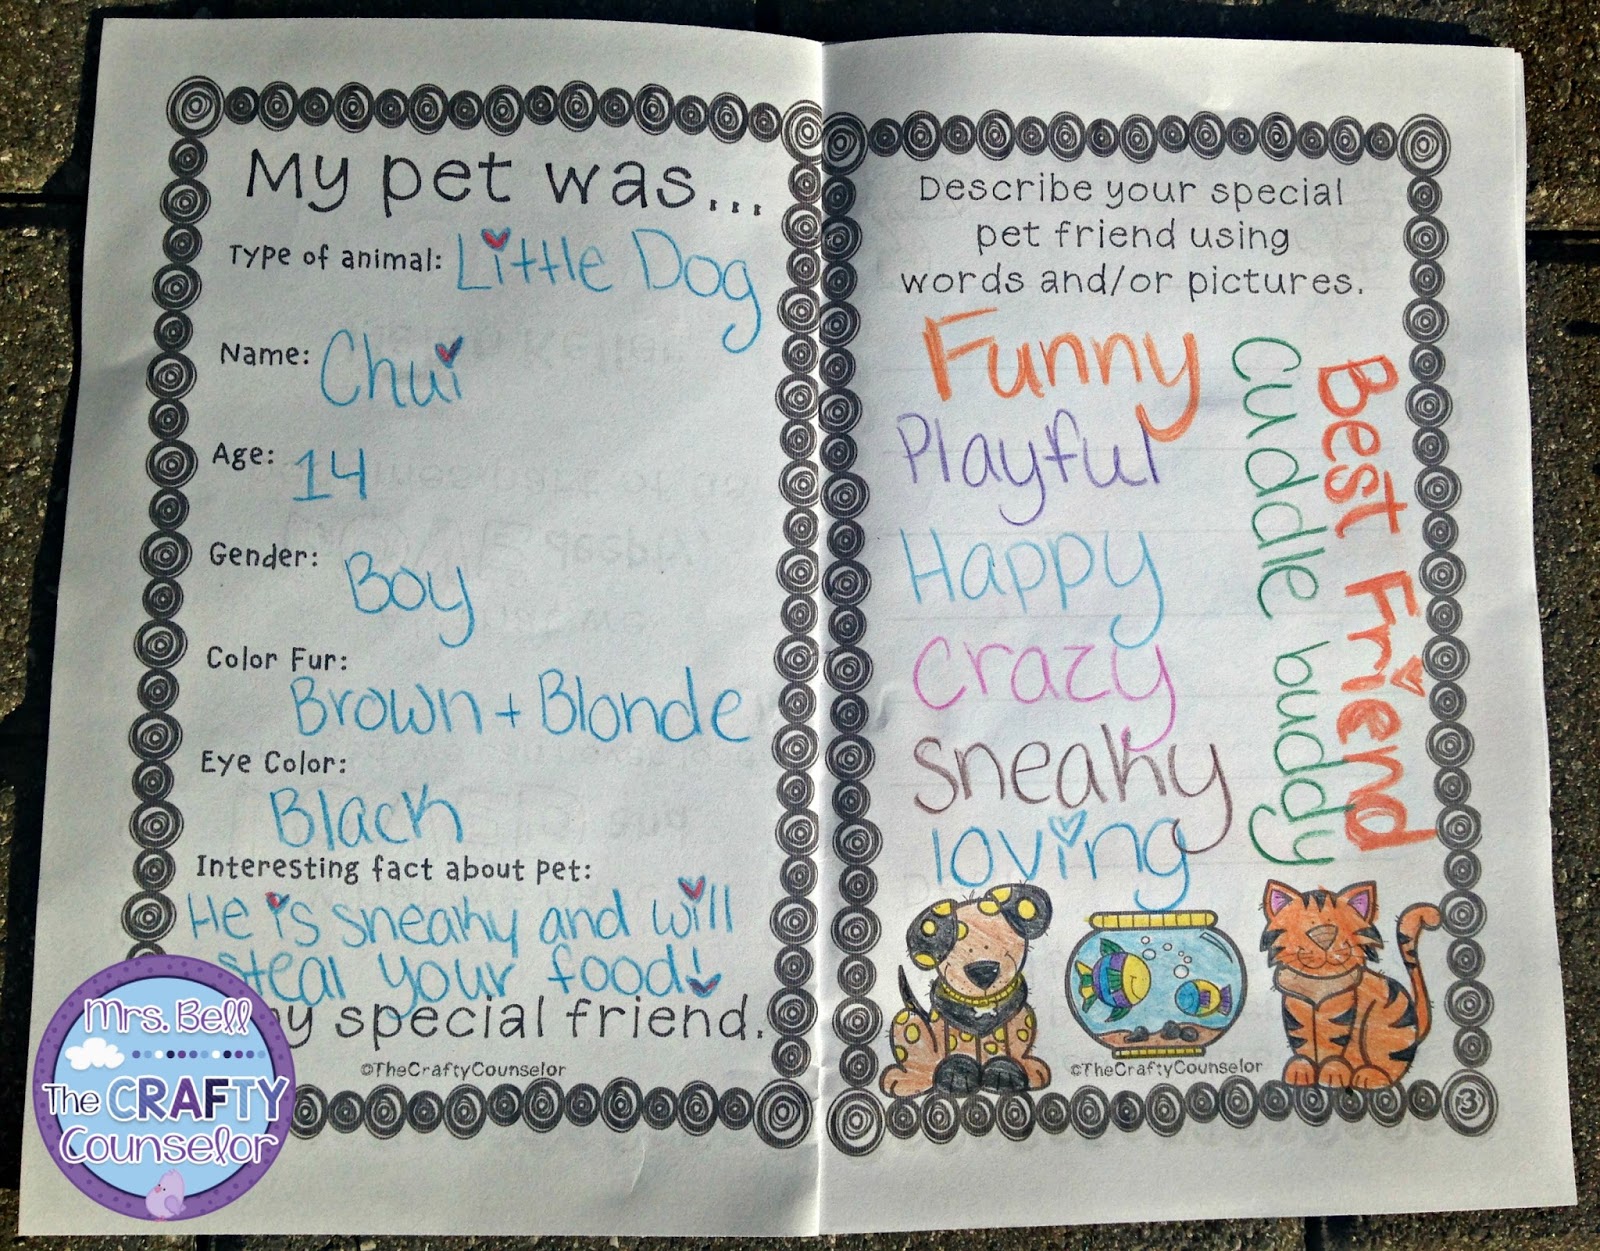 My pet was...
Type of animal: Little Dog
Name: Chui
Age: 14
Gender: Boy
Color Fur:
Brown + Blonde
Eye Color:
Black
Interesting fact about pet:
He is sneaky and will
steal your food!
my special friend.
©TheCraftyCounselor
Mrs. Bell
The CRAFTY
Counselor
Describe your special
pet friend using
words and/or pictures.
Funny
Playful
Happy
Crazy
Sneaky
loving
Cuddle buddy
Best Friend
©TheCraftyCounselor
3